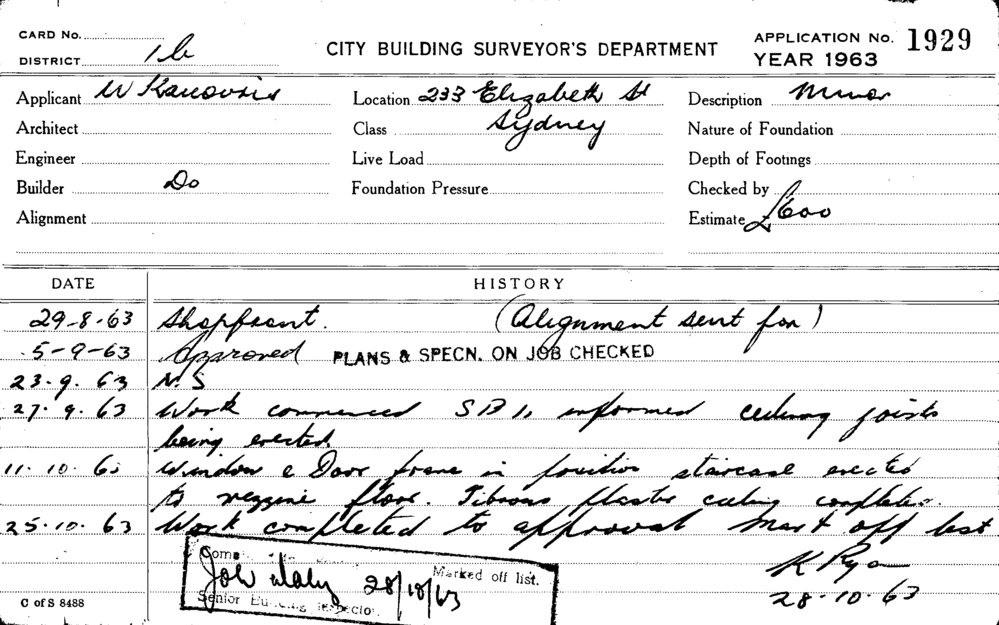 CARD No.
DISTRICT 1b
CITY BUILDING SURVEYOR'S DEPARTMENT
APPLICATION No. 1929
YEAR 1963
Applicant W
Location 233 Elizabeth St
Description Minor
Architect
Class Sydney
Nature of Foundation
Engineer
Live Load
Depth of Footings
Builder Do
Foundation Pressure
Checked by
Alignment
Estimate £600
DATE HISTORY
29-8-63 Shopfront. (Alignment sent for)
5-9-63 Approved PLANS & SPECN. ON JOB CHECKED
23.9.63 N.S
27.9.63 Work commenced informed ceiling joists
being erected.
11.10.63 Window & Door frame in position staircase erected
to mezzine floor. Fibrous plaster ceiling completed.
25.10.63 Work completed to approval Mark off list
K Ryan
28.10.63
Marked off list.
28/10/63
Senior Building Inspector
C of S 8488